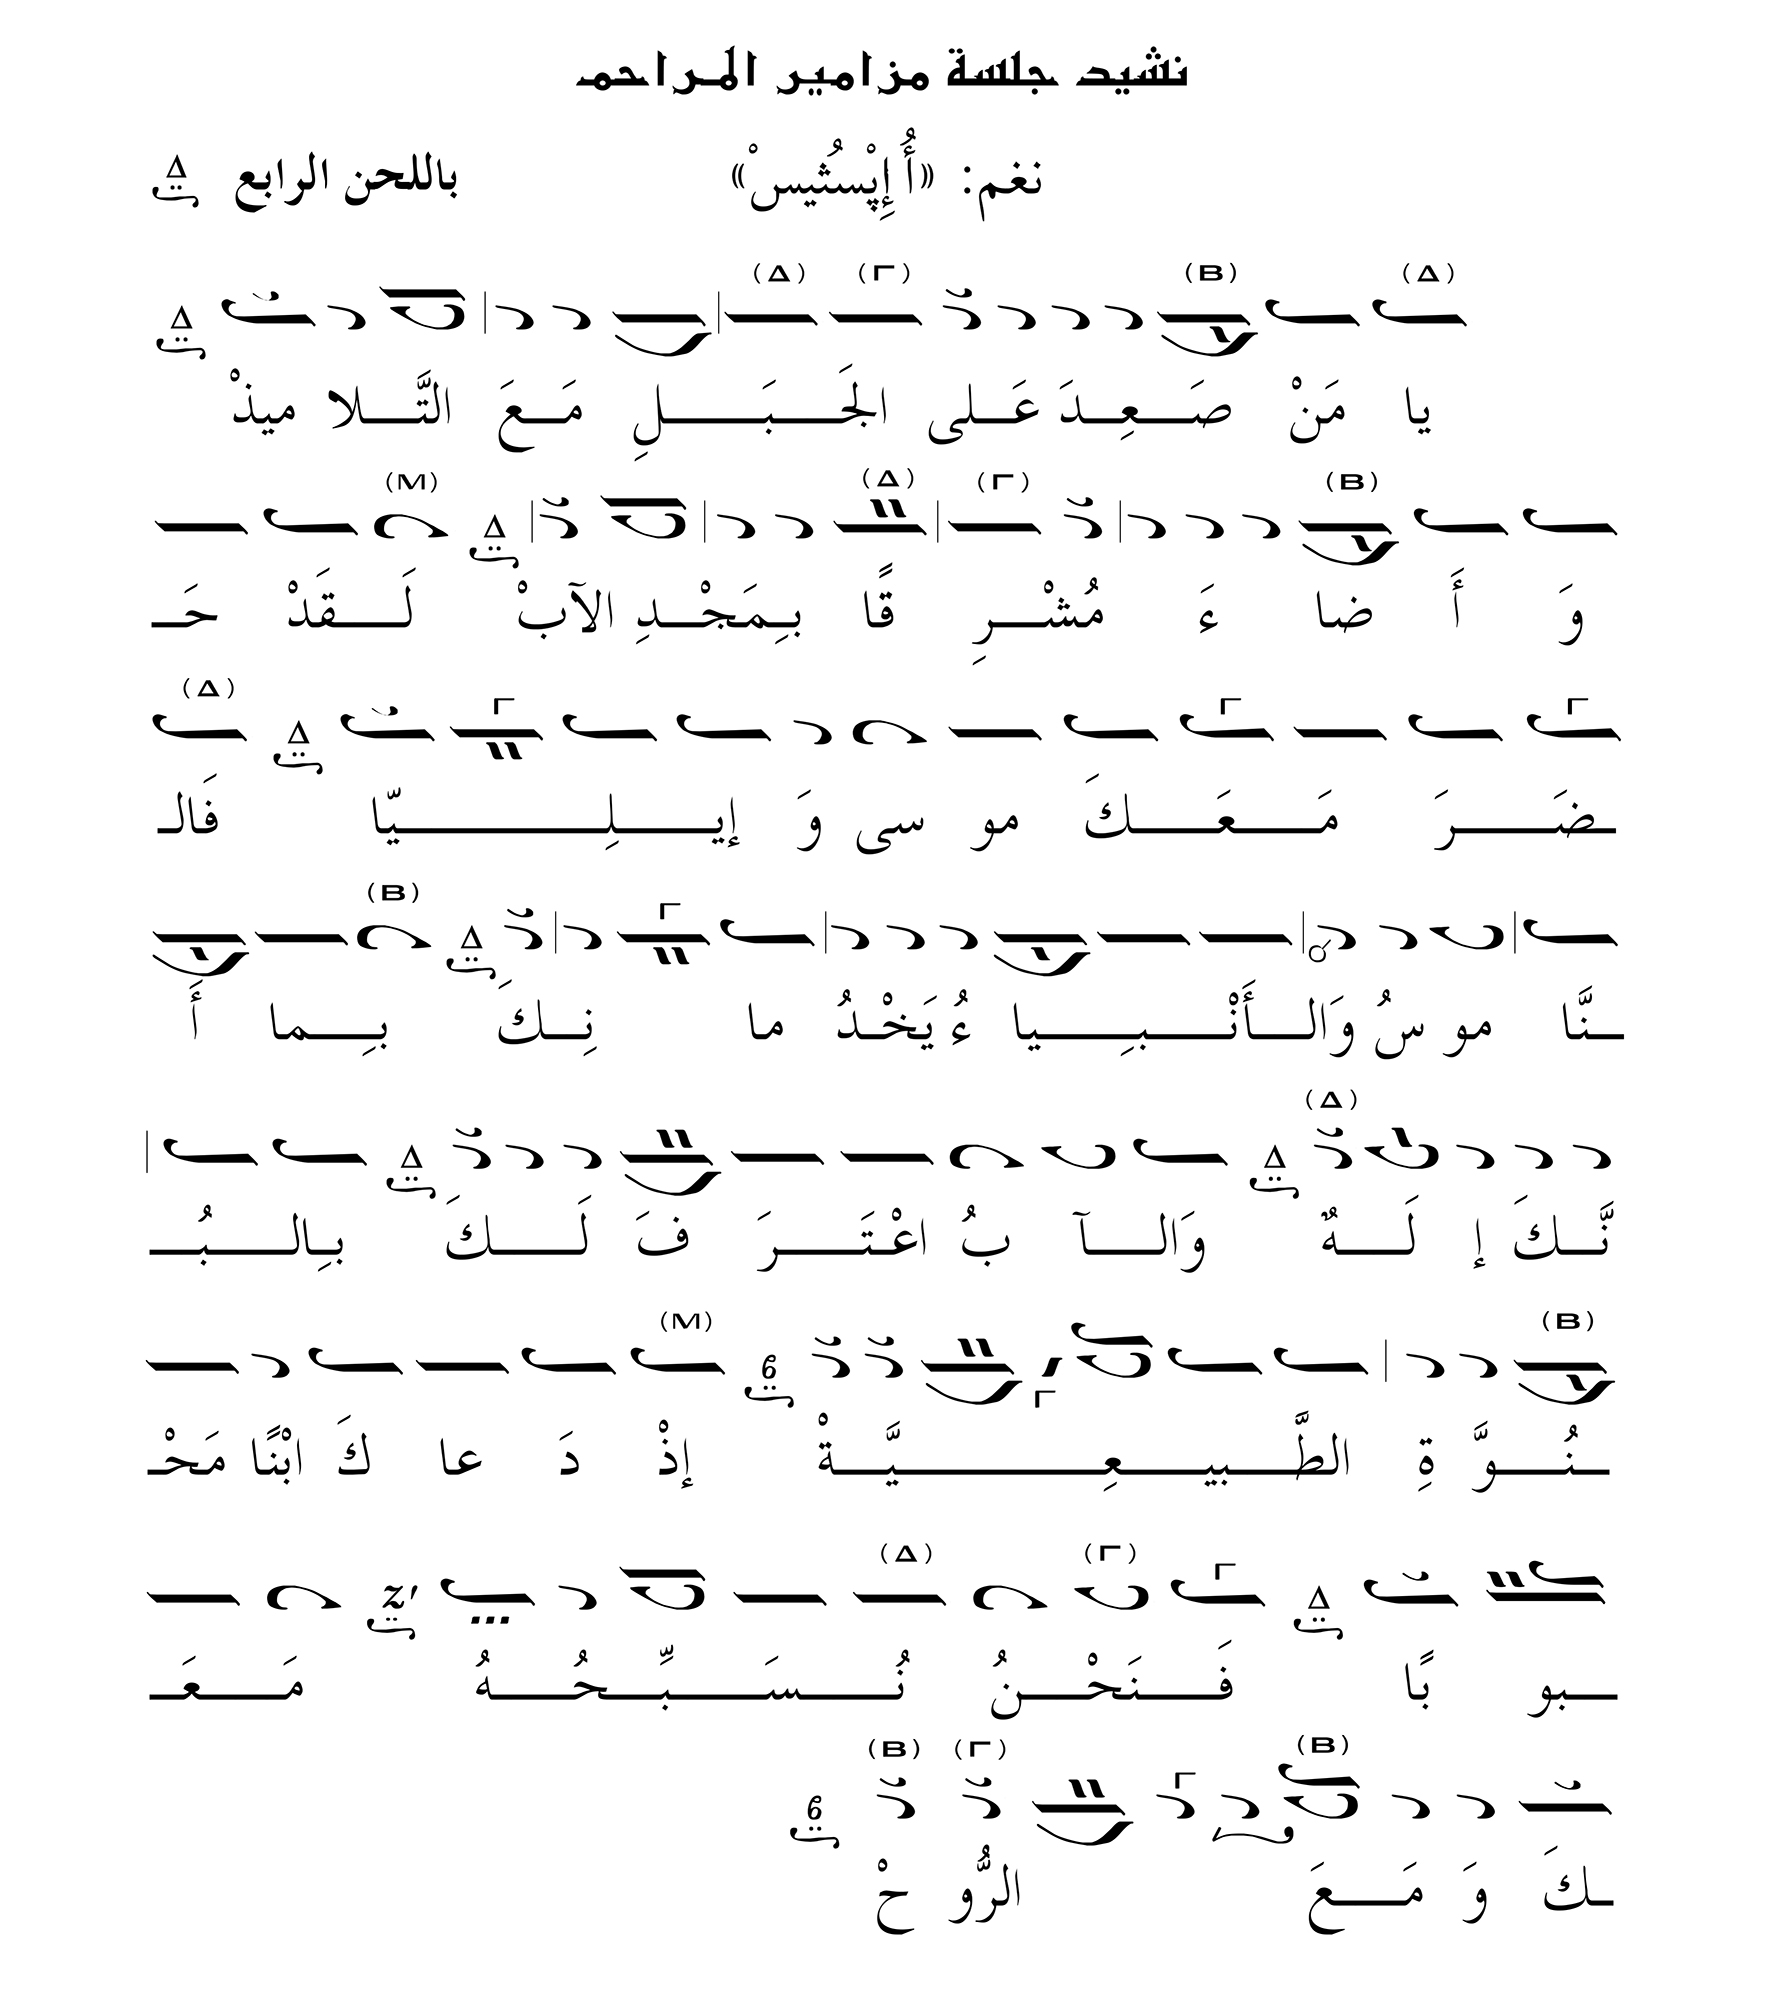 نشيد جلسة مزامير المراحم
نغم: «أُ إِپْستُثيسْ» باللحن الرابع Δ
(Δ) (B) (Γ) (Δ)
يا مَنْ صَعِدَ عَلى الجَبَلِ مَعَ التَّلاميذْ Δ
(B) (Γ) (Δ) Δ (M)
وَ أَ ضا ءَ مُشْرِ قًا بِمَجْدِ الآبْ لَقَدْ حَـ
Γ Γ Γ Δ (Δ)
ـضَرَ مَعَكَ مو سى وَ إيلِيّا فَالـ
Γ Δ (B)
ـنَّا مو سُ وَالأَنْبِيا ءُ يَخْدُ ما نِكَ بِما أَ
(Δ) Δ Δ
نَّكَ إ لَهٌ وَالآ بُ اعْتَرَ فَ لَكَ بِالبُـ
(B) Γ 6 (M)
ـنُوَّ ةِ الطَّبيعِيَّةْ إذْ دَ عا كَ ابْنًا مَحْـ
Δ Γ (Γ) (Δ) Z'
ـبو بًا فَنَحْنُ نُسَبِّحُهُ مَعَـ
(B) Γ (Γ) (B) 6
ـكَ وَ مَعَ الرُّو حْ